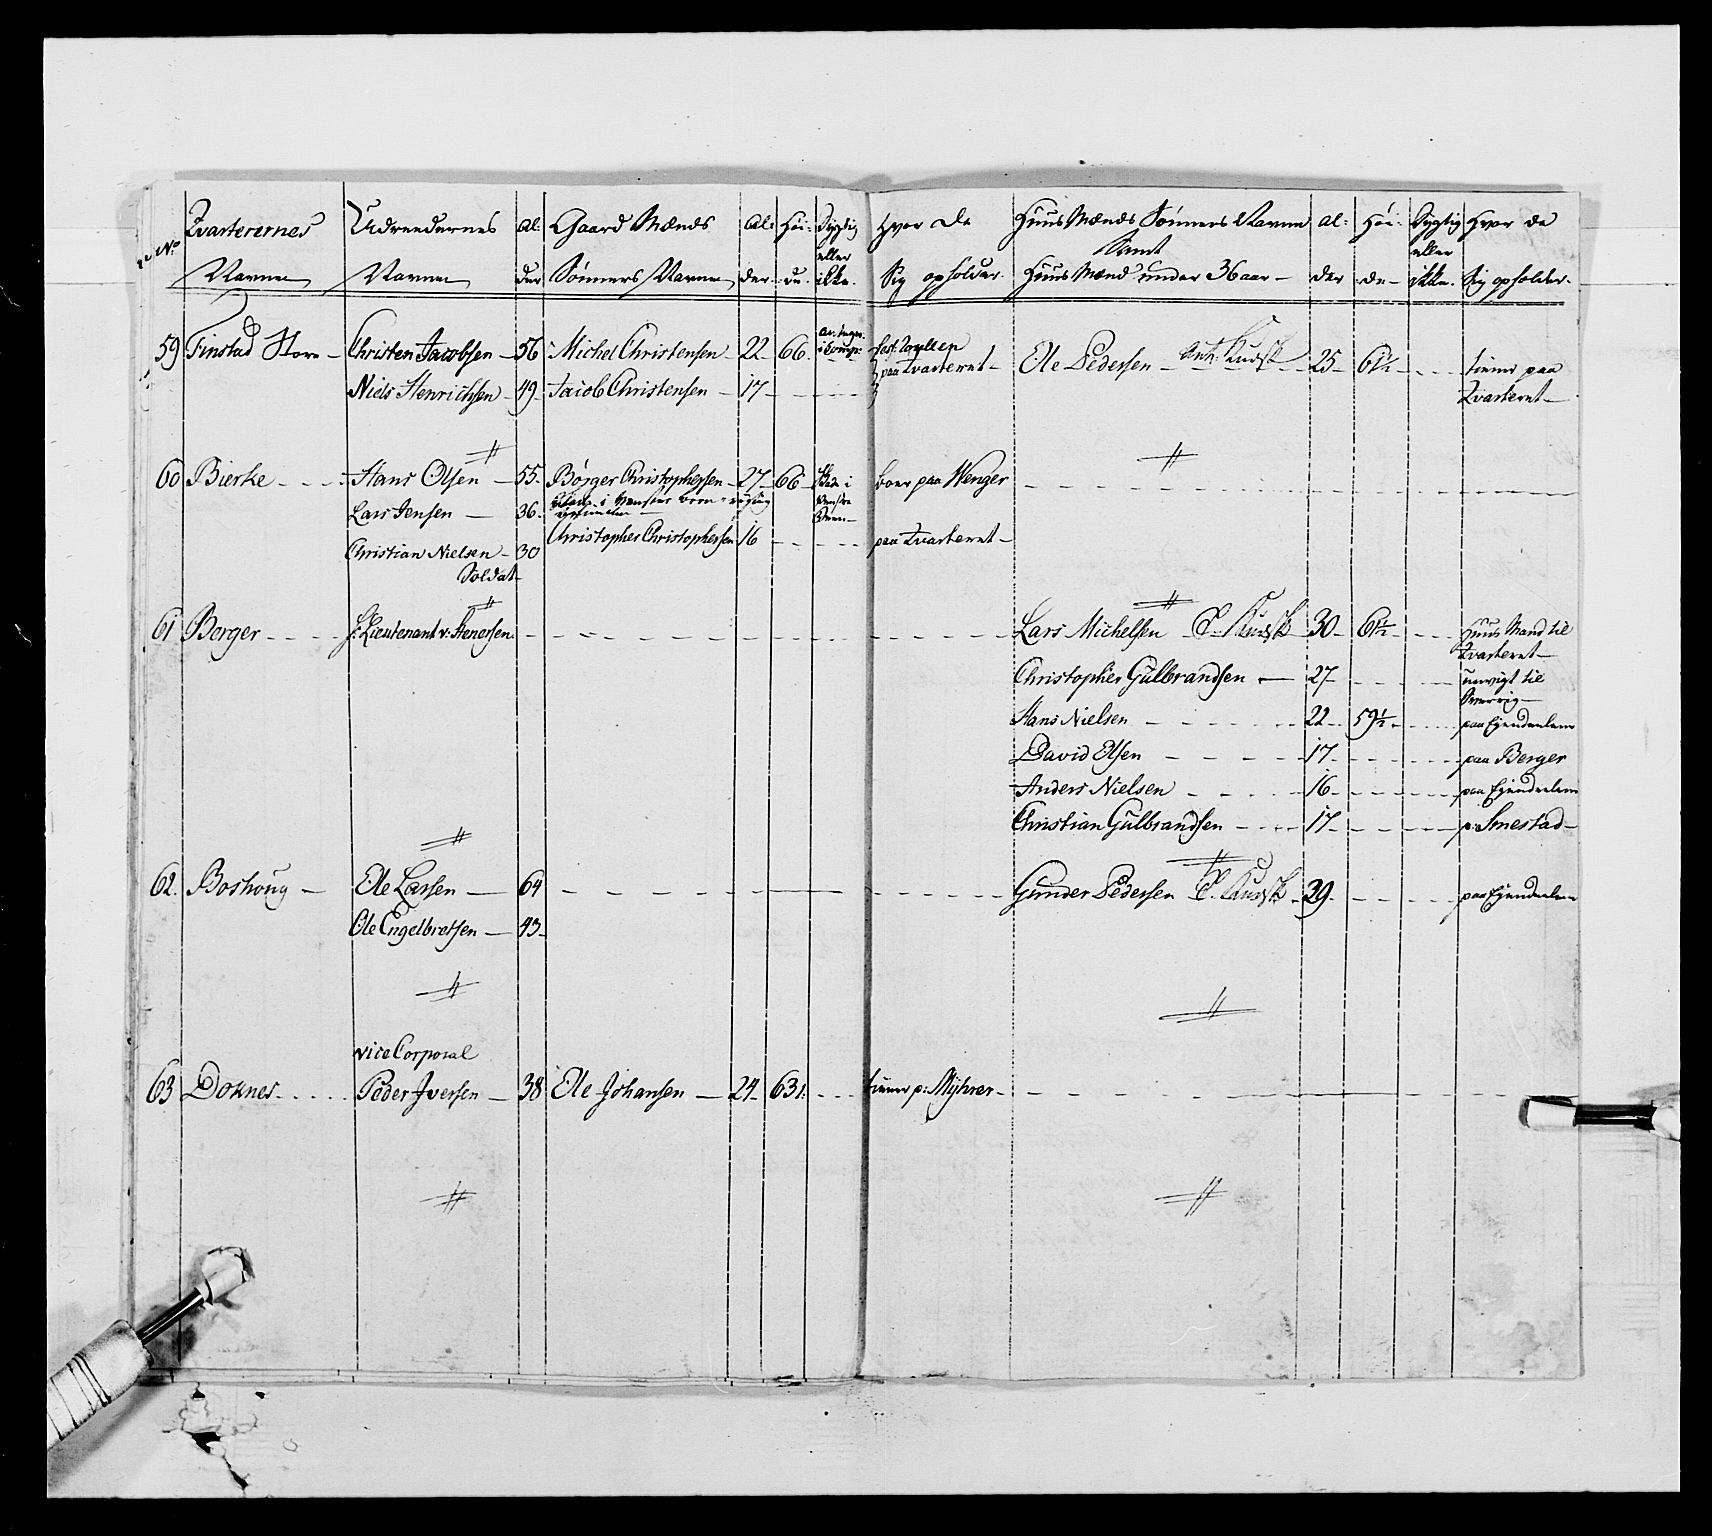 No
Qvarterernes Navne
Udreedernes Navne
Al: der
Gaard Mænds Sønners Navne
Al: der
Høi: de
Dygtig eller ikke
Hvor de Sig opholder
Huus Mænds Sønners Navne Samt Huus Mænd under 36 aar
Al: der
Høi: de
Dygtig eller ikke
Hvor de Sig opholder
59 Finstad Store Christen Jacobsen 56 Michel Christensen 22 66 paa Qvarteret Ole Pedersen 25 61½ tiener paa Qvarteret
Niels Henrichsen 49 Jacob Christensen 17
60 Bierke Hans Olsen 55 Børger Christophersen 27 66 boer paa Wenger
Lars Jensen 36
Christopher Christophersen 16 paa Qvarteret
Christian Nielsen 30
Soldat
61 Berger Lieutenant v: Stenersen Lars Michelsen 30 61½ Huus Mand til Qvarteret
Christopher Gulbrandsen 27 til Sverrig
Hans Nielsen 22 59½ paa Ejendeelene
David Olsen 17 paa Berger
Anders Nielsen 16 paa Ejendeelene
Christian Gulbrandsen 17 p: Smestad
62 Boshoug Ole Larsen 64 Gunder Pedersen 29 paa Ejendeelene
Ole Engelbretsen 43
vice Corporal
63 Doknes Peder Iversen 38 Ole Johansen 24 63 tiener p: Myhrer